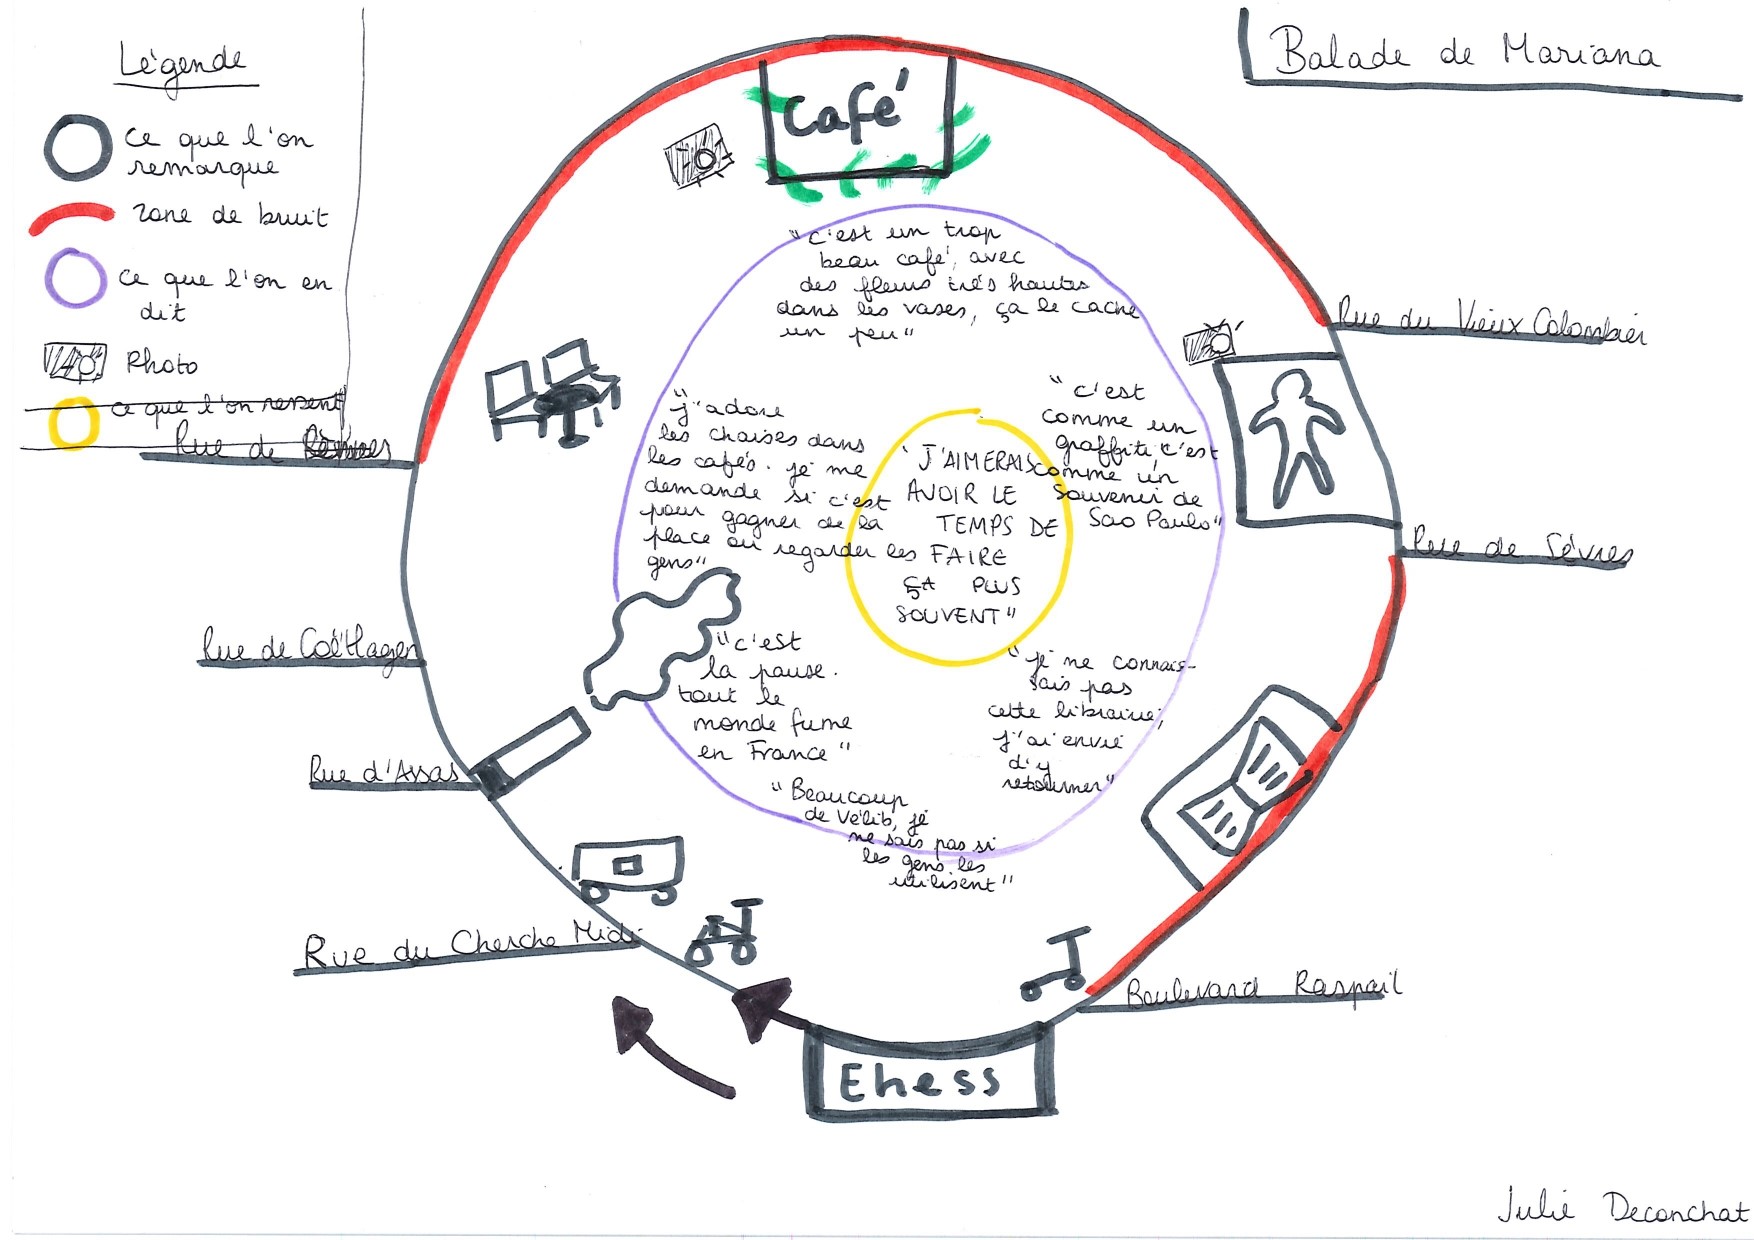 Légende
ce que l'on
remarque
zone de bruit
ce que l'on en
dit
Photo
ce que l'on ressent
Balade de Mariana
Café
"c'est un trop
beau café, avec
des fleurs très hautes
dans les vases, ça le cache
un peu"
Rue du Vieux Colombier
"c'est
comme un
graffiti c'est
comme un
souvenir de
Sao Paulo"
"j'adore
les chaises dans
les cafés. je me
demande si c'est
pour gagner de la
place ou regarder les
gens"
"J'AIMERAIS
AVOIR LE
TEMPS DE
FAIRE
ÇA PLUS
SOUVENT"
Rue de Rennes
Rue de Sèvres
Rue de Coëtlagen
"c'est
la pause.
tout le
monde fume
en France"
"je ne connais-
sais pas
cette librairie,
j'ai envie
d'y
retourner"
Rue d'Assas
"Beaucoup
de Vélib, je
ne sais pas si
les gens les
utilisent"
Rue du Cherche Midi
Boulevard Raspail
Ehess
Julie Deconchat